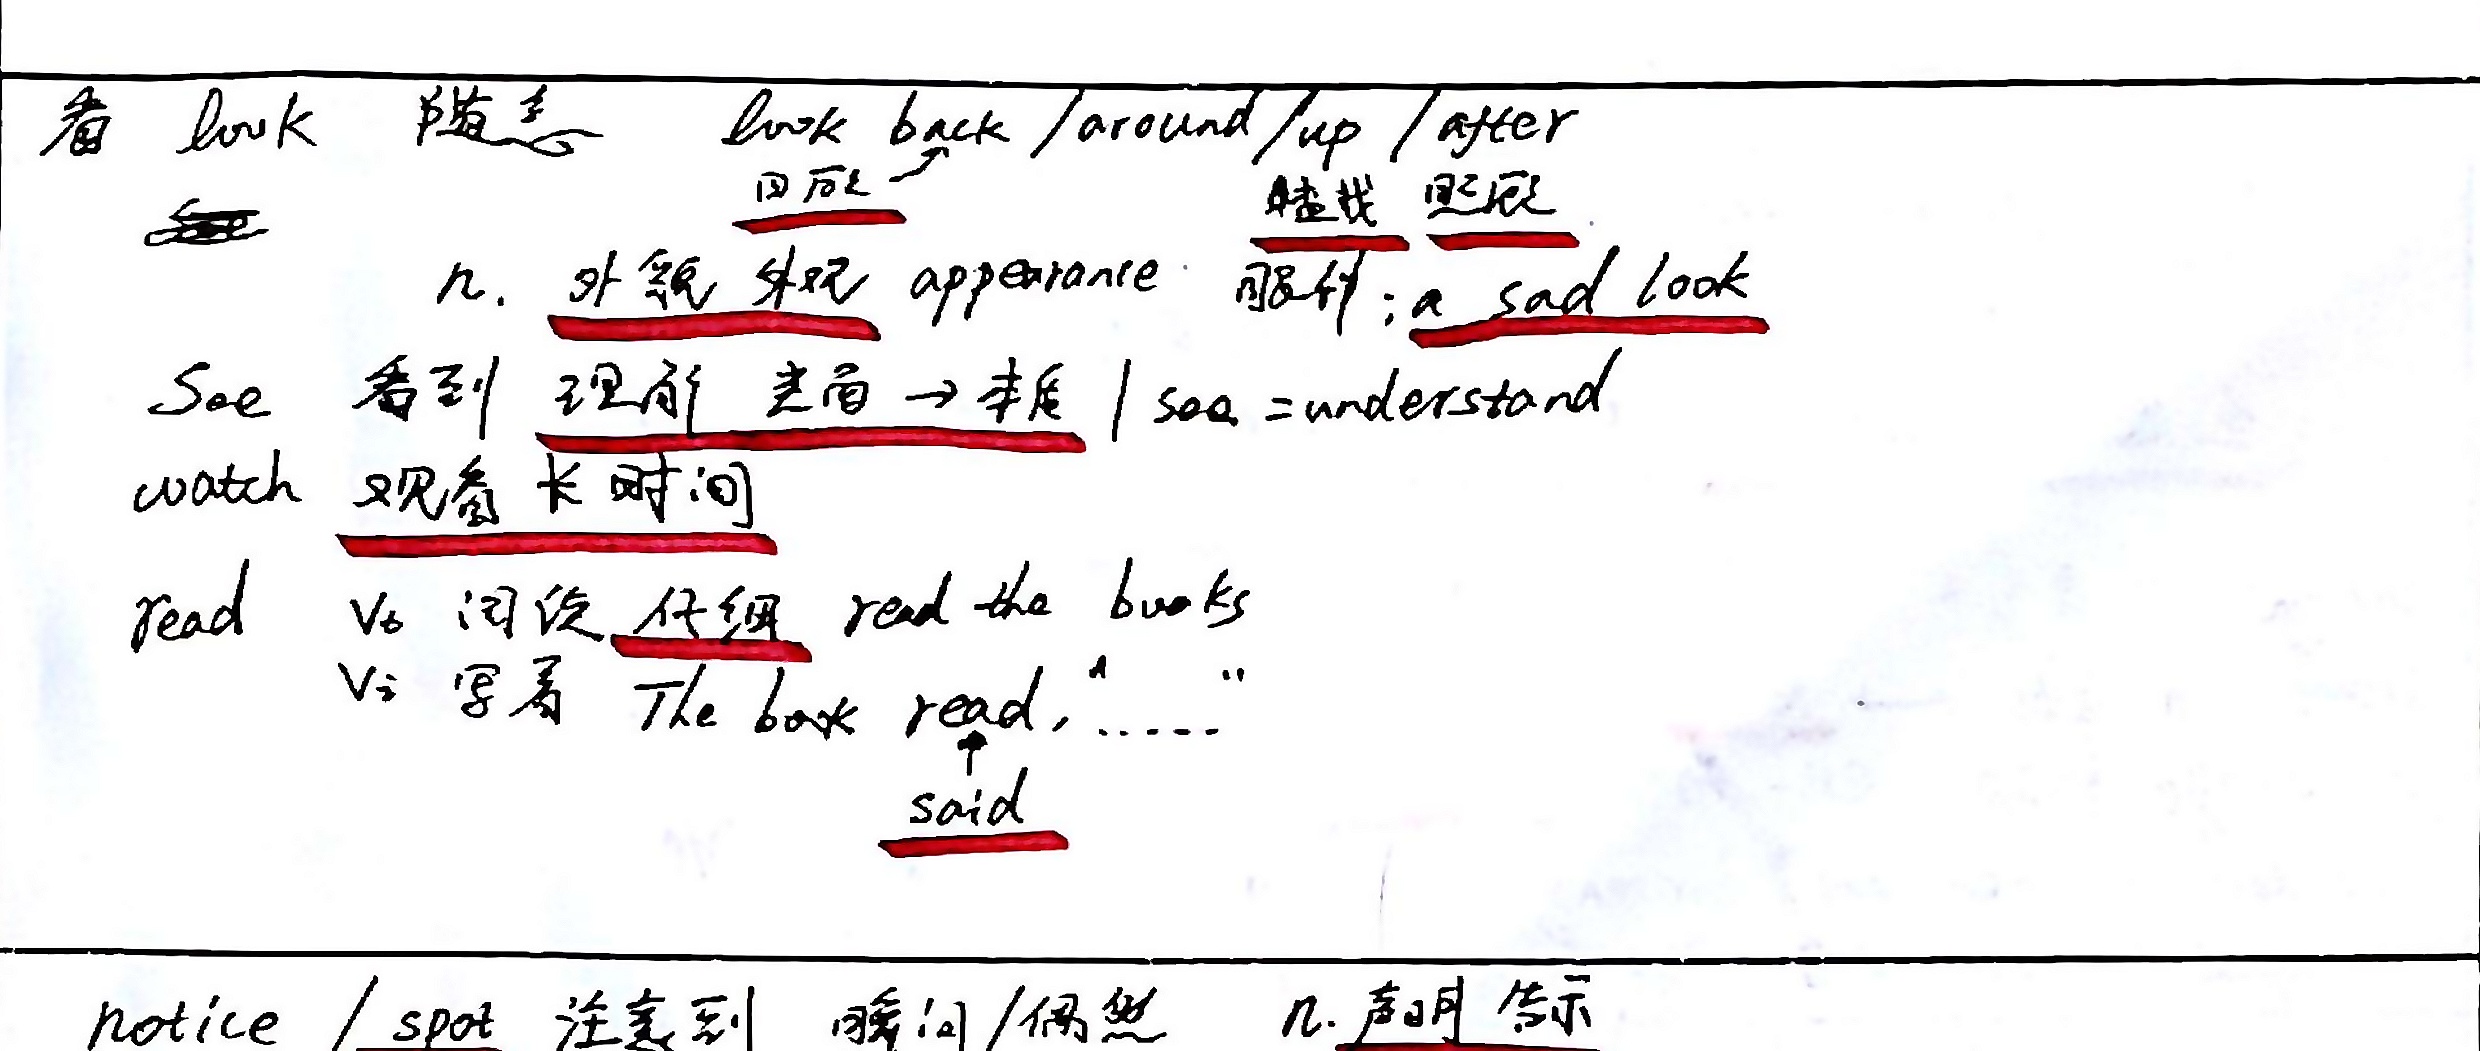 看 look 随意 look back / around / up / after
回顾 查找 照顾
n. 外貌 外观 appearance 眼神 ; a sad look
See 看到 理解 表面 → 本质 | see = understand
watch 观看 长时间
read Vt 阅读 仔细 read the books
Vi 写着 The book read, "......"
said
notice / spot 注意到 瞬间/偶然 n. 声明 告示